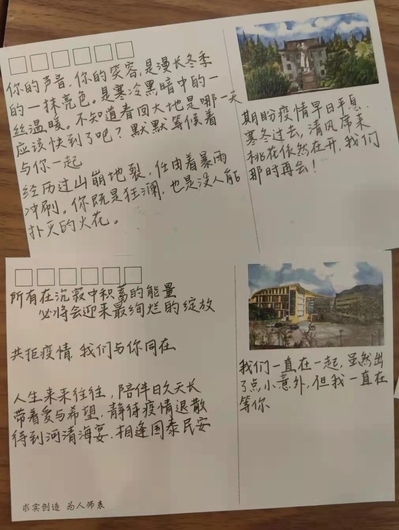 你的声音,你的笑容,是漫长冬季
的一抹亮色。是寒冷黑暗中的一
丝温暖。不知道春回大地是哪一天
应该快到了吧?默默等候着
与你一起
经历过山崩地裂,任由着暴雨
冲刷。你既是狂澜,也是没人能
扑灭的火花。
期盼疫情早日平息
寒冬过去,清风席来
桃花依然在开,我们
那时再会!
所有在沉寂中积蓄的能量
必将会迎来最绚烂的绽放
共拒疫情 我们与你同在
人生来来往往,陪伴日久天长
带着爱与希望,静待疫情退散
待到河清海宴,相逢国泰民安
我们一直在一起,虽然出
了点小意外,但我一直在
等你
求实创造 为人师表